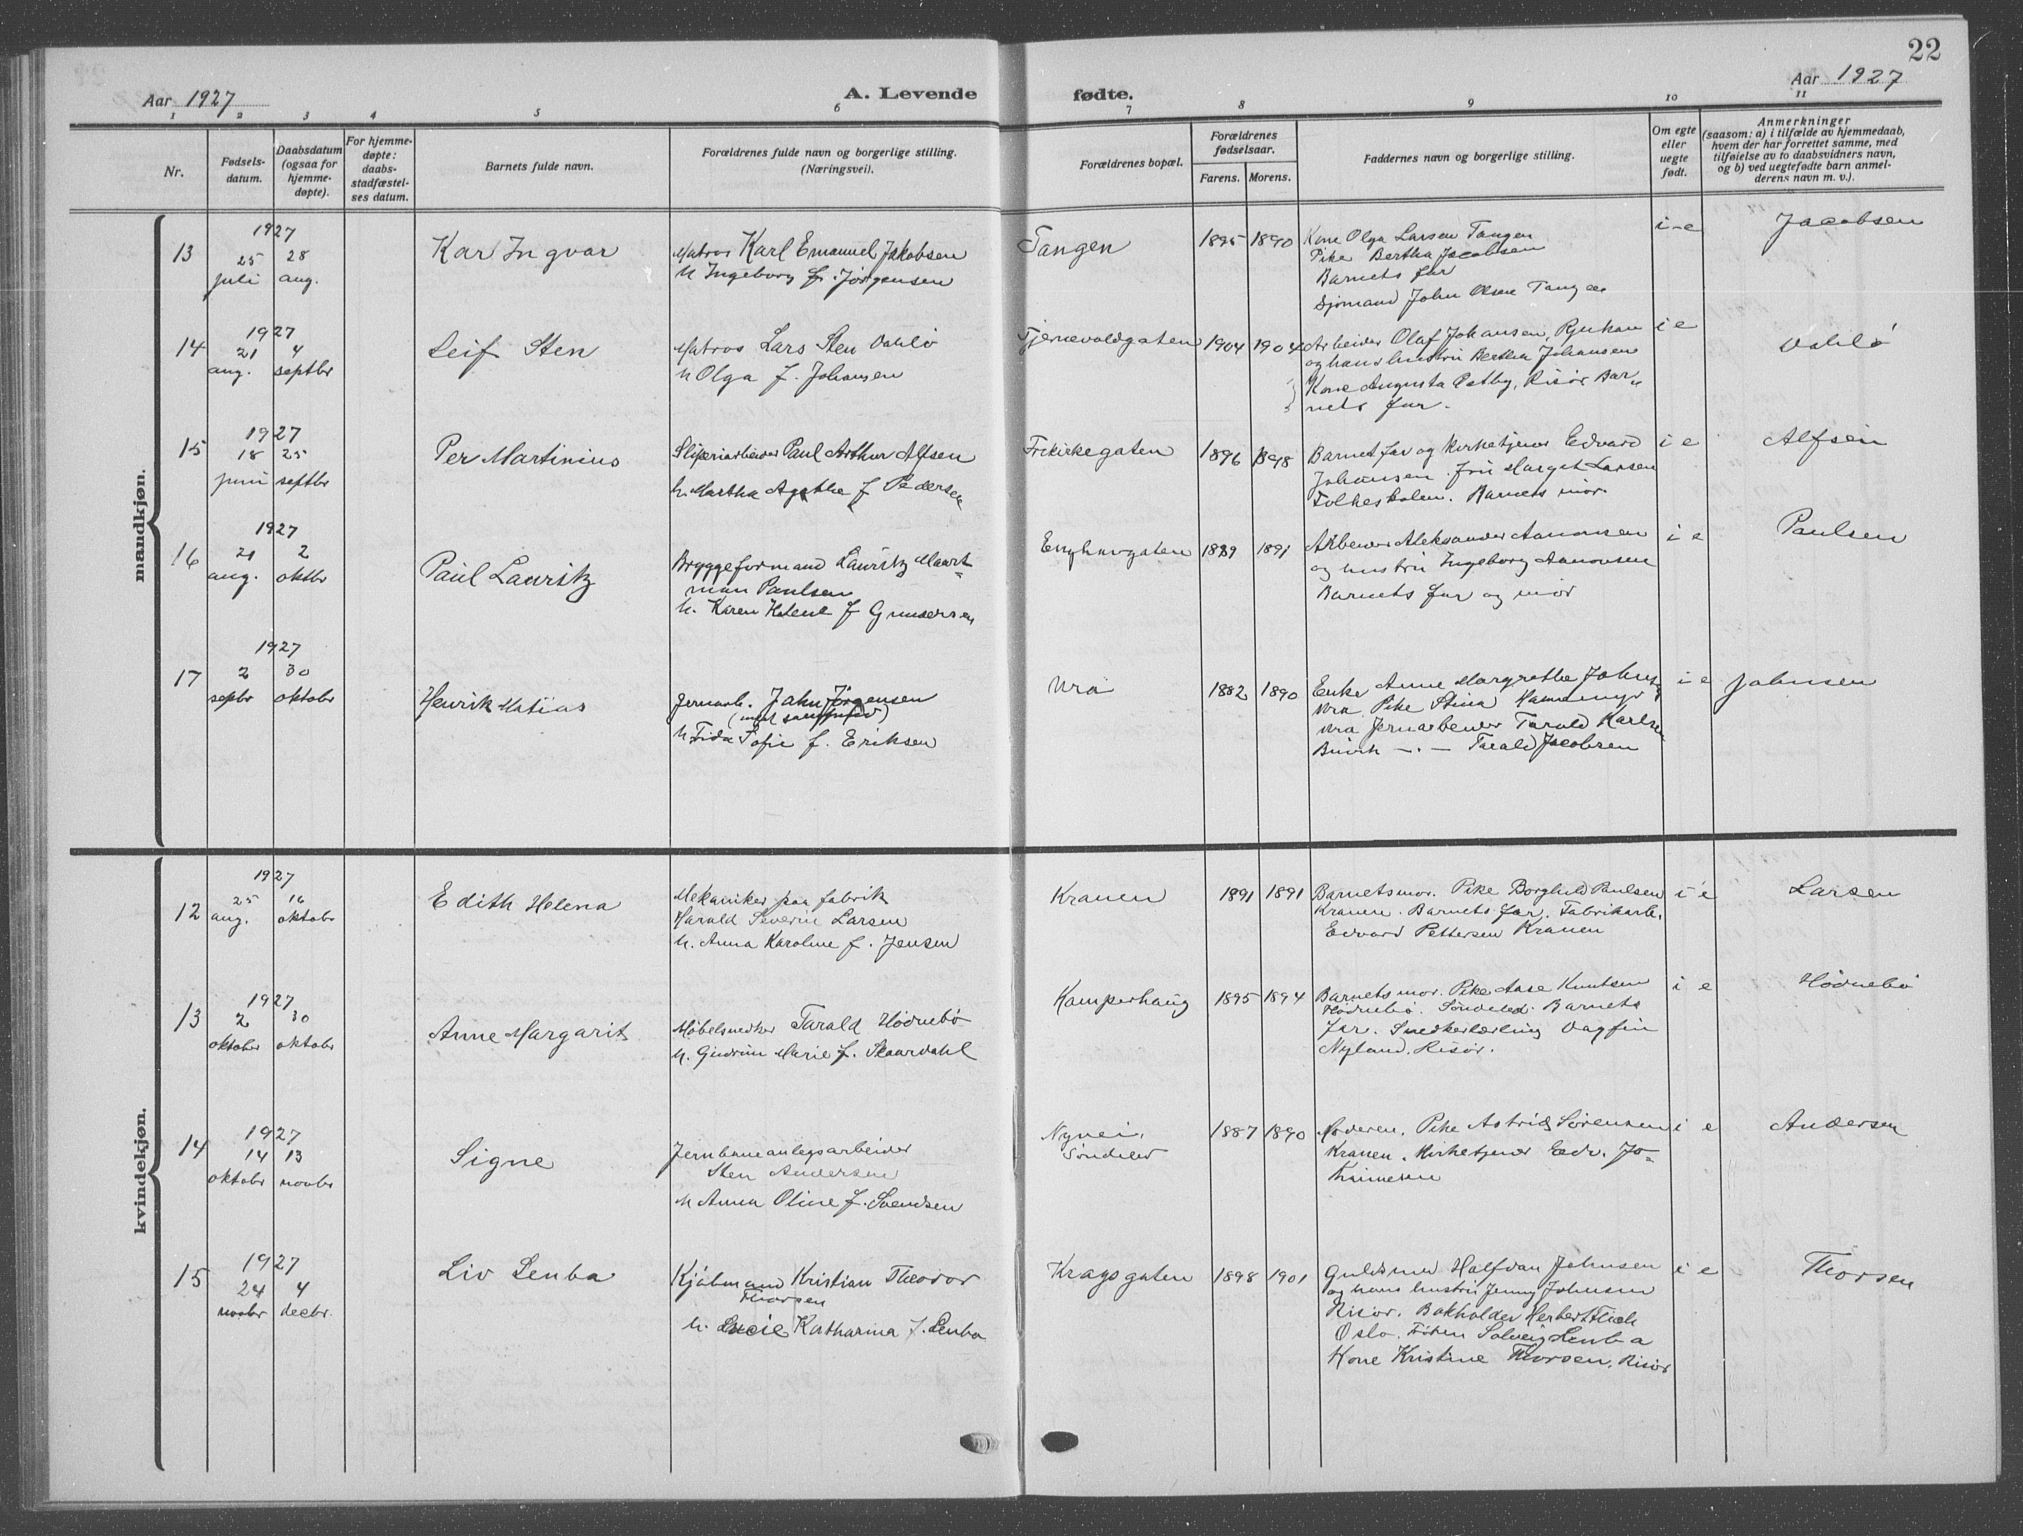 22
Aar 1927
A. Levende fødte.
Aar 1927
1 2 3 4 5 6 7 8 9 10 11
Nr.
Fødsels-
datum.
Daabsdatum
(ogsaa for
hjemme-
døpte).
For hjemme-
døpte:
daabs-
stadfæstel-
ses datum.
Barnets fulde navn.
Forældrenes fulde navn og borgerlige stilling.
(Næringsvei).
Forældrenes bopæl.
Forældrenes
fødselsaar.
Farens. Morens.
Faddernes navn og borgerlige stilling.
Om egte
eller
uegte
født.
Anmerkninger
(saasom: a) i tilfælde av hjemmedaab,
hvem der har forrettet samme, med
tilføielse av to daabsvidners navn,
og b) ved uegtefødte barn anmel-
derens navn m. v.).
mandkjøn.
13
1927
25 28
juli aug.
Kar Ingvar
Matros Karl Emanuel Jakobsen
u Ingeborg f. Jörgensen
Tangen
1895 1890
Kone Olga Larsen Tangen
Pike Bertha Jacobsen
Barnets far
Sjömand John Olsen Tangen
i-e
Jacobsen
14
1927
21 4
aug. septbr
Leif Sten
Matros Lars Sten Dahlö
u Olga f. Johansen
Tjernevoldgaten
1904 1904
Arbeider Olaf Johansen, Rjukan
og hans hustru Bertha Johansen
Kone Augusta Östby, Risör Bar-
nets far.
i e
Dahlö
15
1927
18 25
juni septbr
Per Martinius
Sliperiarbeider Paul Arthur Alfsen
u. Martha Agathe f Pedersen
Frikirkegaten
1896 1898
Barnets far og Kirketjener Edvard
Johansen. Fru Margit Larsen
Folkeskolen. Barnets mor.
i e
Alfsen
16
1927
21 2
aug. oktbr
Paul Lauritz
Bryggeformand Lauritz Mart-
man Paulsen
u. Karen Helene f Gundersen
Enghavgaten
1889 1891
Arbeider Aleksander Aanonsen
og hustru Ingeborg Aanonsen
Barnets far og mor
i e
Paulsen
17
1927
2 30
septbr oktobr
Henrik Matias
Jernarb. John Jörgensen
u Frida Sofie f. Eriksen
Vra
1882 1890
Enke Anne Margrethe Johnsen
Vra Pike Stina Hammermyr
Vra Jernarbeider Tarald Karlsen
Buvik —.— Tarald Jacobsen
i e
Johnsen
kvindekjøn.
12
1927
25 16
aug. oktobr
Edith Helena
Mekaniker paa fabrik
Harald Severin Larsen
u. Anna Karoline f. Jensen
Kranen
1891 1891
Barnets mor. Pike Borghild Paulsen
Kranen. Barnets far. Fabrikarb.
Edvard Pettersen Kranen
i e
Larsen
13
1927
2 30
oktober oktobr
Anne Margarit
Möbelsnedker Tarald Hödnebö
u. Gudrun Marie f. Skaardahl
Kamperhaug
1895 1894
Barnets mor. Pike Aase Knutsen
Hödnebö. Söndeled. Barnets
far. Snedkerlærling Dagfin
Nyland. Risör.
i e
Hödnebö
14
1927
14 13
oktobr novbr
Signe
Jernbaneanlegsarbeider
Sten Andersen
u Anna Oline f. Svendsen
Nyvei,
Söndeled
1887 1890
Moderen. Pike Astrid Sörensen
Kranen. Kirketjener Edv. Jo-
hannesen
i e
Andersen
15
1927
24 4
novbr decbr.
Liv Lenba
Kjöbmand Kristian Theodor
Thorsen
u. Lucie Katharina f. Lenba
Kragsgaten
1898 1901
Guldsmed Halfdan Johnsen
og hans hustru Jenny Johnsen
Risör. Bokholder Herbert
Oslo. Fröken Solveig Lenba
Kone Kristine Thorsen. Risör
i e
Thorsen